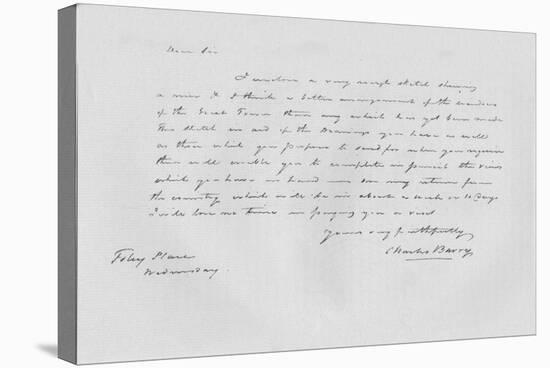 Dear Sir
I enclose a very rough sketch shewing
a new & I think a better arrangement of the windows
of the Great Tower than any which has yet been made
This sketch and of the Drawings you have as well
as those which you propose to send for when you require
them will enable you to complete in pencil the view
which you have in hand on my return from
the country which will be in about a week or 10 days
I will lose no time in paying you a visit
Yours very faithfully
Charles Barry
Foley Place
Wednesday